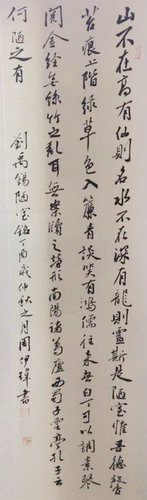 山不在高有仙則名水不在深有龍則靈斯是陋室惟吾德馨
苔痕上階綠草色入簾青談笑有鴻儒往來無白丁可以調素琴
閱金經無絲竹之亂耳無案牘之勞形南陽諸葛廬西蜀子雲亭孔子云
何陋之有 劉禹錫陋室銘丁酉歲仲秋之月周伊瑋書